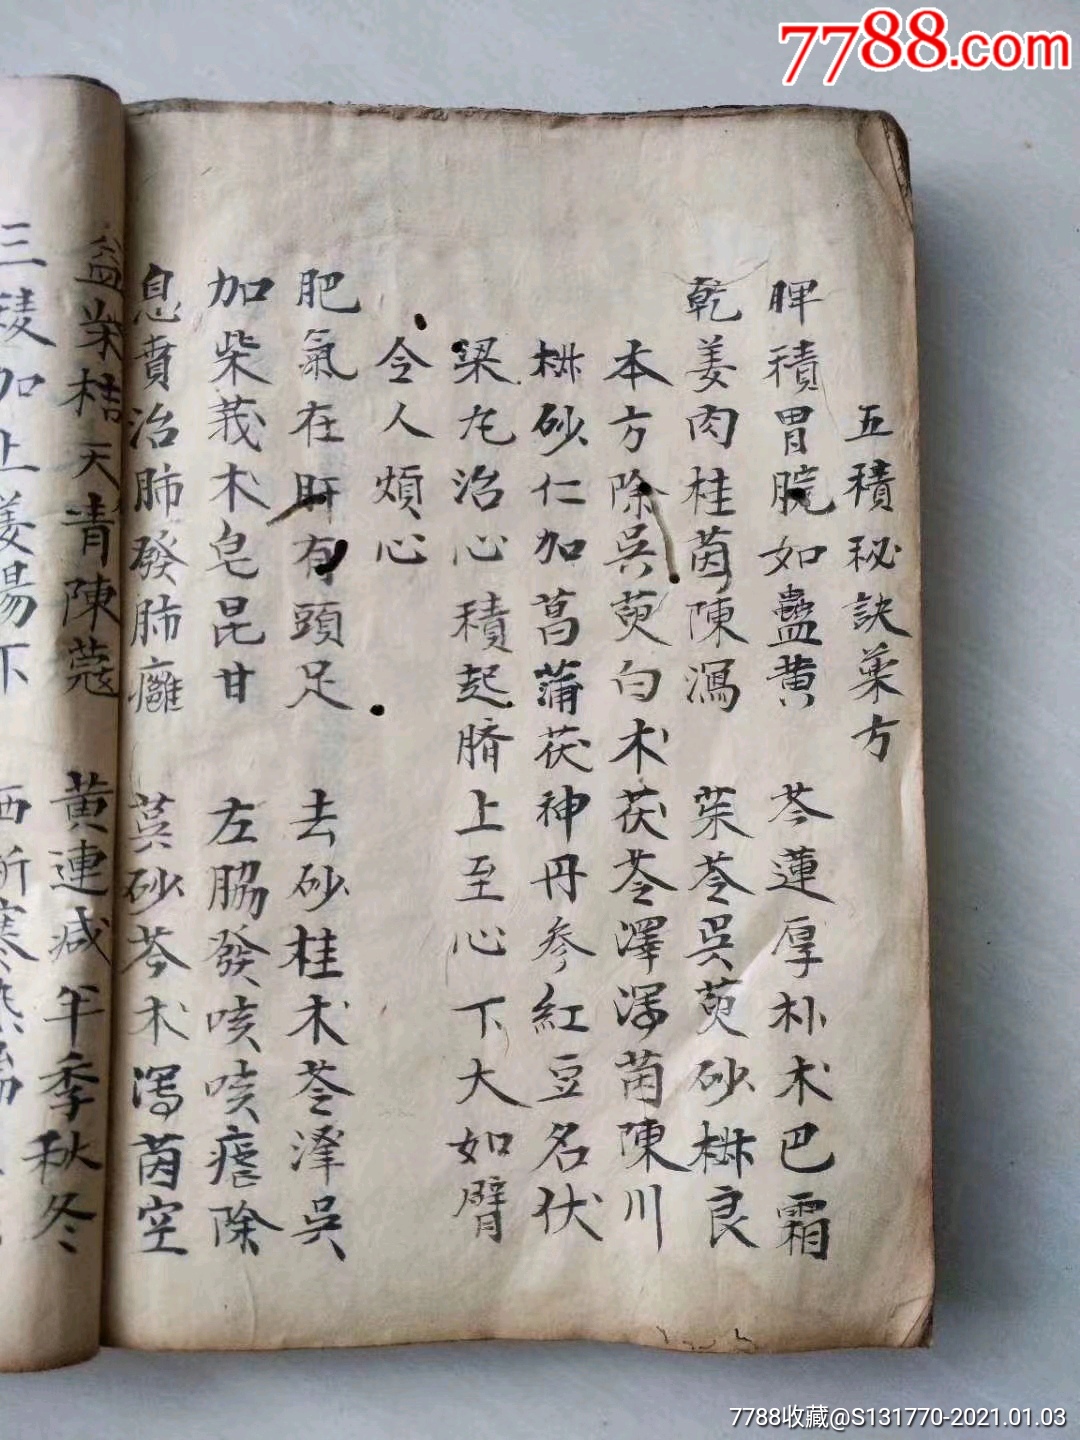 7788.com
五積秘訣藥方
脾積胃脘如蠱黃 芩蓮厚朴木巴霜
乾姜肉桂茵陳瀉 茱苓吳萸砂椒良
本方除吳萸白术茯苓澤瀉茵陳川
椒砂仁加菖蒲茯神丹參紅豆名伏
梁丸治心積起臍上至心下大如臂
令人煩心
肥氣在肝有頭足 去砂桂术苓澤吳
加柴莪木皂昆甘 左脇發咳咳瘧除
息賁治肺發肺癰 萸砂芩术瀉茵空
桔天青陳蔻 黃連減半季秋冬
三稜加上姜湯下
7788收藏@S131770-2021.01.03